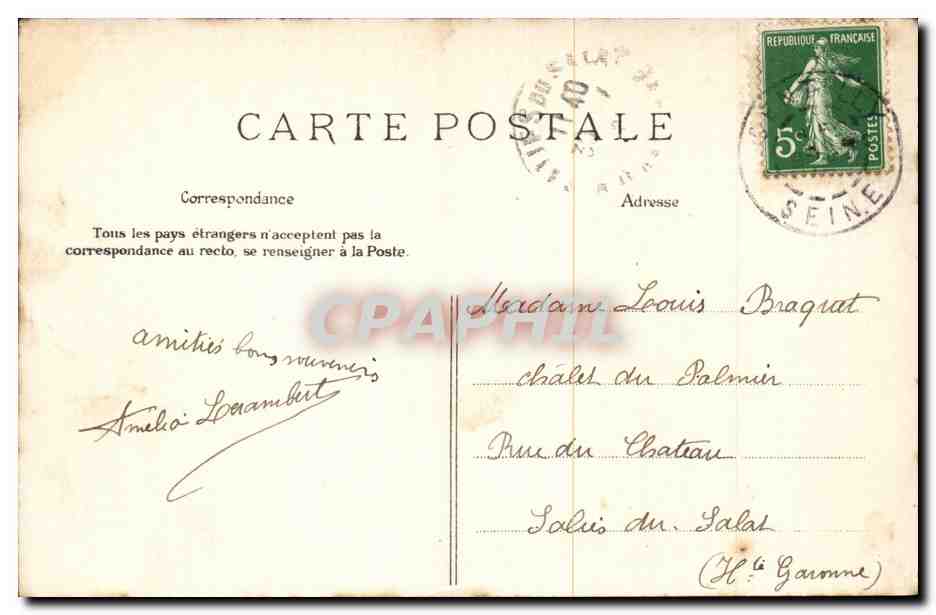 REPUBLIQUE FRANÇAISE
5c
POSTES
SEINE
CARTE POSTALE
Correspondance
Adresse
Tous les pays étrangers n'acceptent pas la
correspondance au recto, se renseigner à la Poste.
CPAPHIL
Madame Louis Braquet
châlet du Palmier
Rue du Chateau
Salies du Salat
(Hte Garonne)
amitiés bons souvenirs
Amélia Lerambert